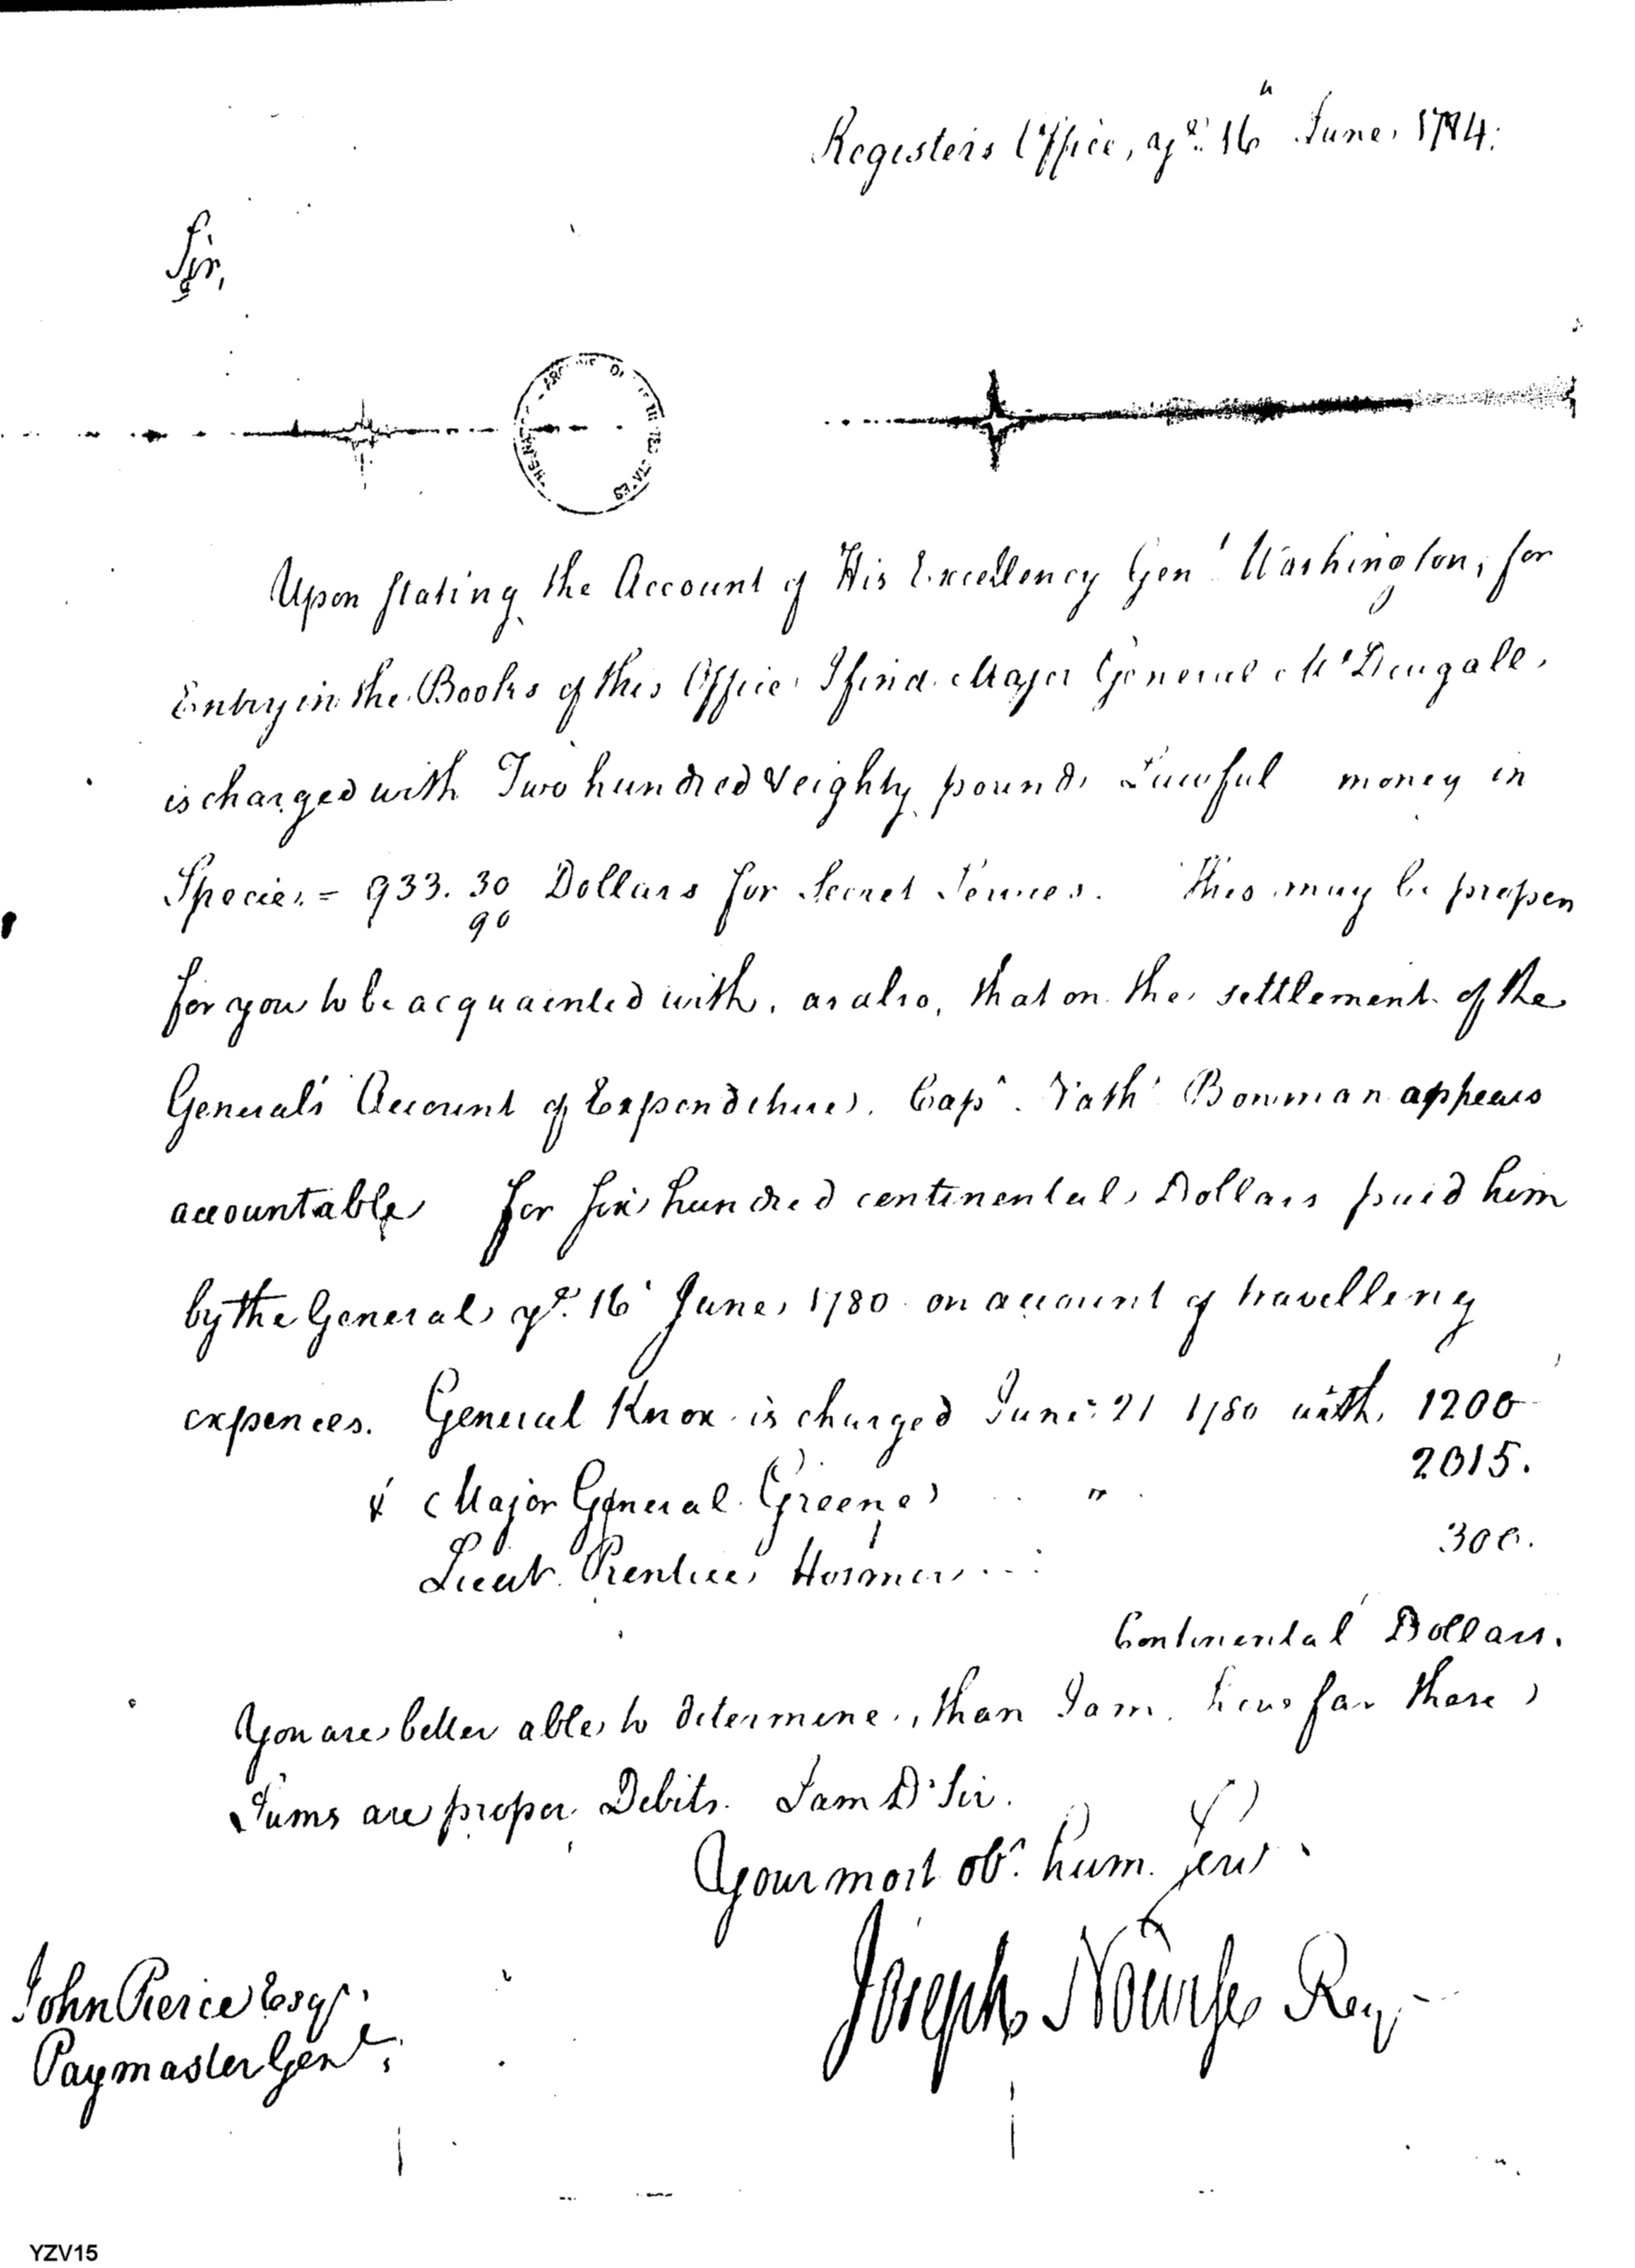 Registers Office, yᵉ. 16ʰ June 1784.
Sir,
Upon stating the Account of His Excellency Genˡ Washington, for
Entry in the Books of this Office I find Major General McDougale,
is charged with Two hundred & eighty pounds Lawful money in
Specie = 933. 30/90 Dollars for Secret Services. This may be proper
for you to be acquainted with, as also, that on the settlement of the
General's Account of Expenditures. Capᵗ. Nathˡ Bowman appears
accountable for six hundred continental Dollars paid him
by the General yᵉ. 16 June 1780 on account of travelling
expences. General Knox is charged June 21 1780 with 1200
2015.
& Major General Greene "
300.
Lieut. Prentice Hosmer
Continental Dollars.
You are better able to determine, than I am, how far these
Sums are proper Debits. I am Dʳ Sir.
Your most obᵗ. hum. Servᵗ
Joseph Nourse Reg
John Pierce Esqʳ.
Paymaster Genˡ.
YZV15